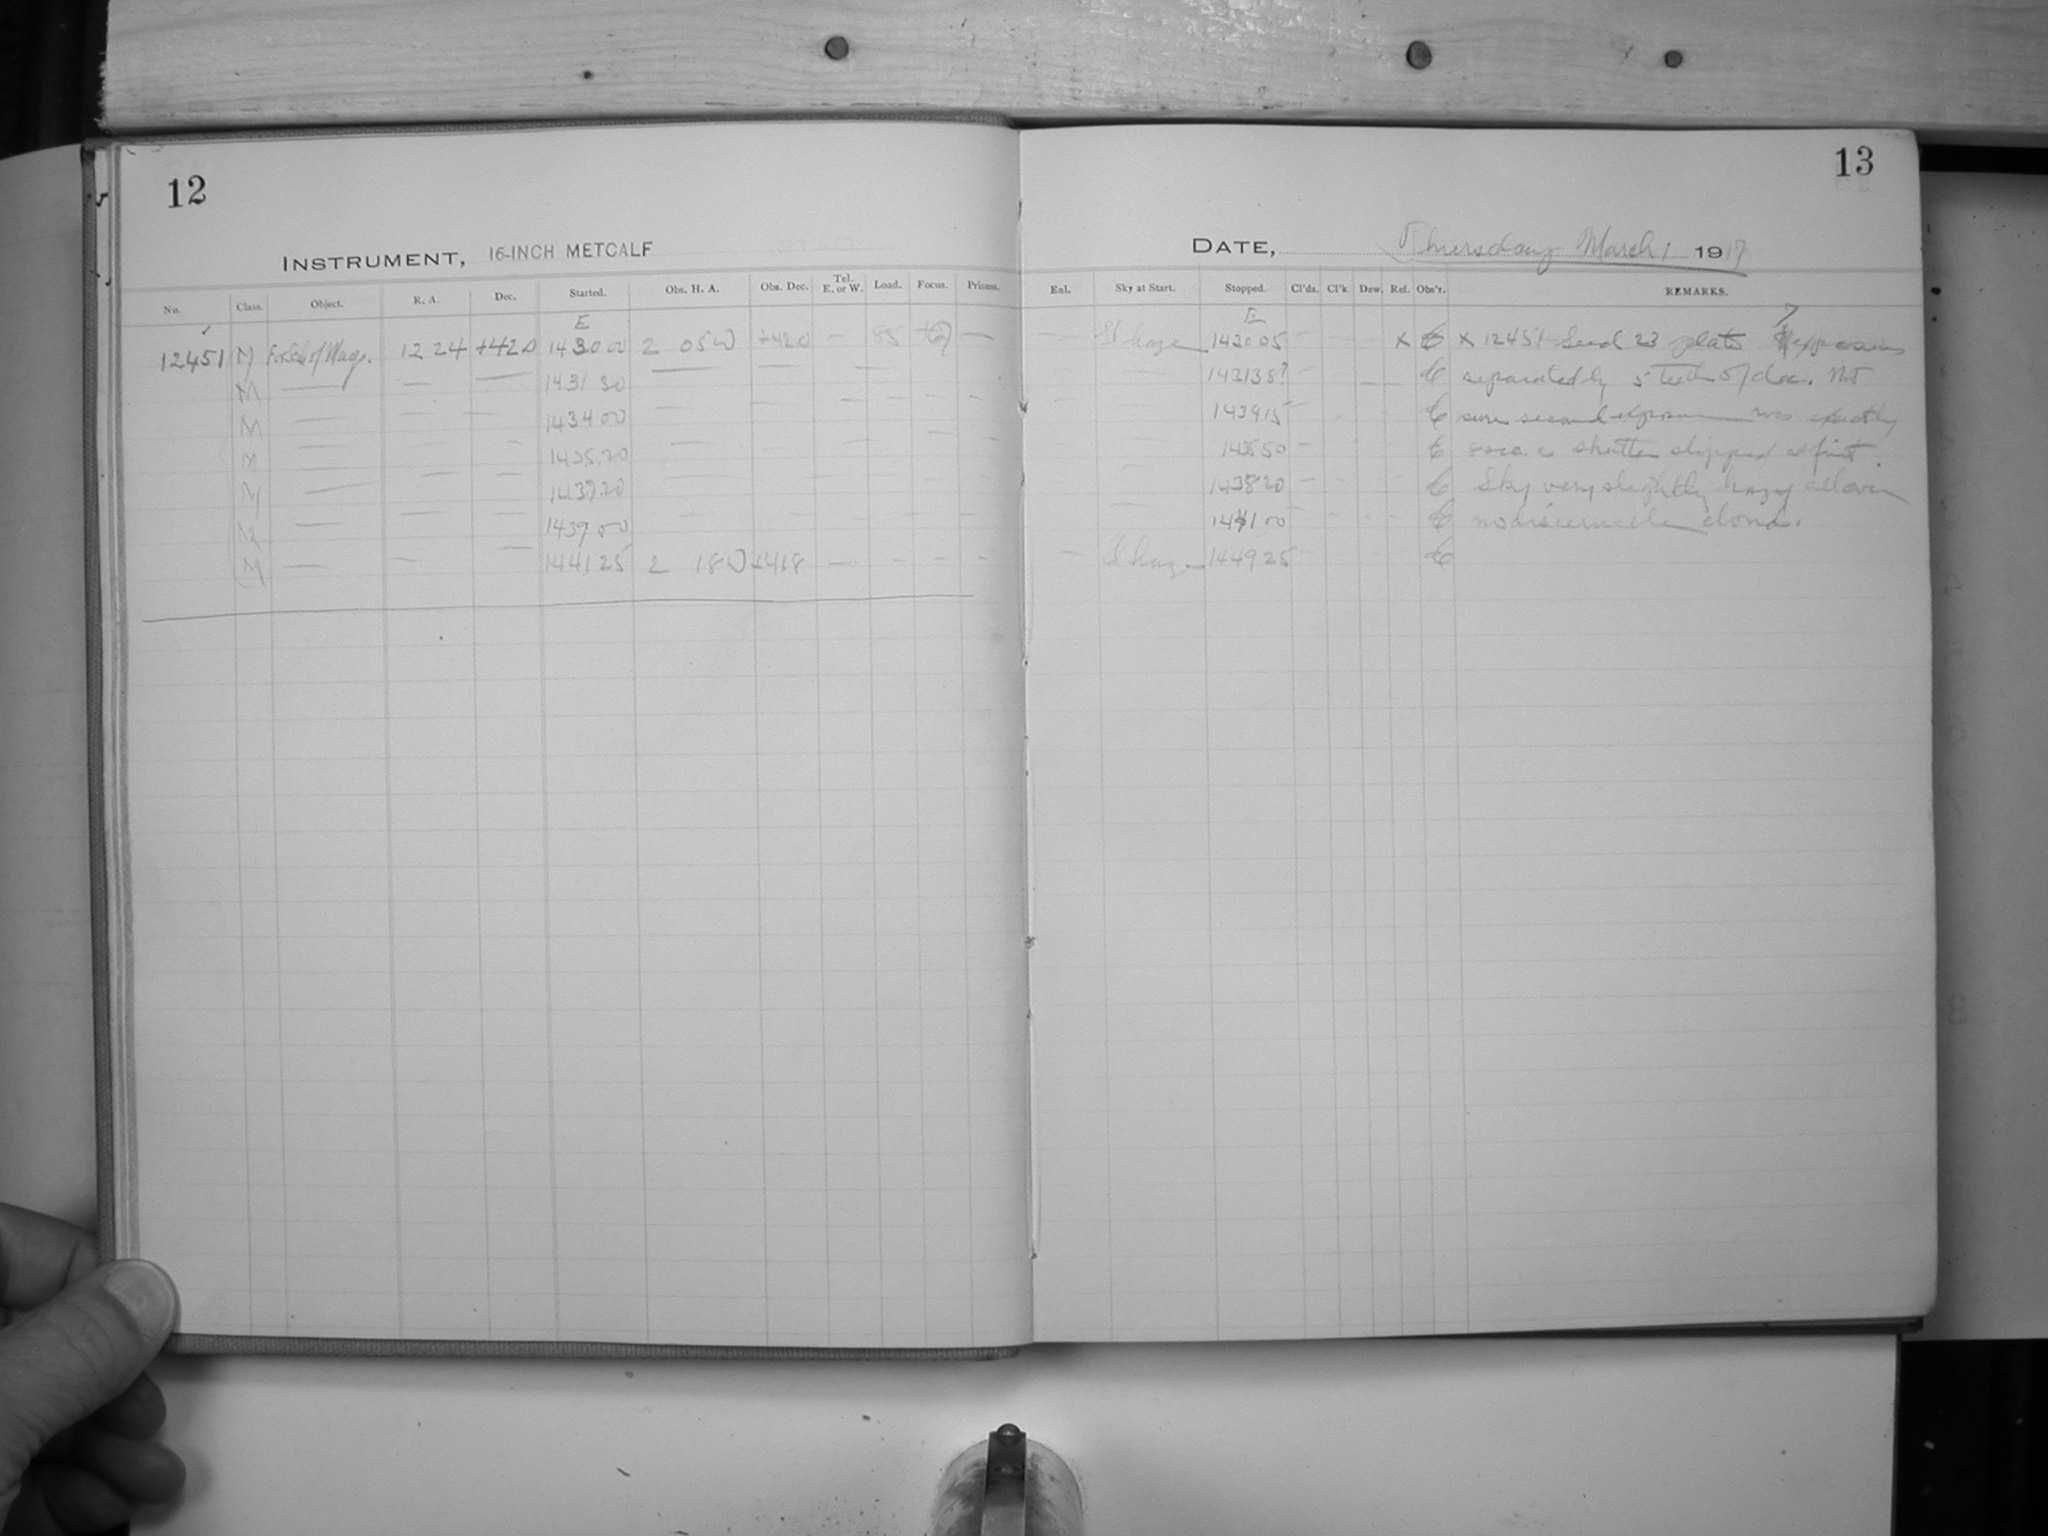 12
INSTRUMENT, 16-INCH METCALF
No. Class. Object. R. A. Dec. Started. Obs. H. A. Obs. Dec. Tel. E. or W. Load. Focus. Prisms.
E
12451 M 12 24 +42.0 14 30 00 2 05 W +42.0 — 85 —
M — — — 14 31 30 — — — —
M — — — 14 34 00 — — — —
M — — — 14 35 20 — — — —
M — — — — — — —
M — — — 14 39 00 — — — —
M — — — 14 41 25 2 18 W +41.8 — — — —
13
DATE, Thursday March 1 1917
Eal. Sky at Start. Stopped. Cl'ds. Cl'k Dew. Ref. Obs'r. REMARKS.
E
— Sl haze × C × 12451 Seed 23 plate 7 exposures
— C separated by 5 teeth of dec. Not
— 14 34 15 C sure second exposure was exactly
— 14 35 50 C 8 sec. as shutter slipped at first.
— 14 38 20 C Sky very slightly hazy all over
— 14 41 00 C no discernible cloud.
— S haze 14 49 25 C